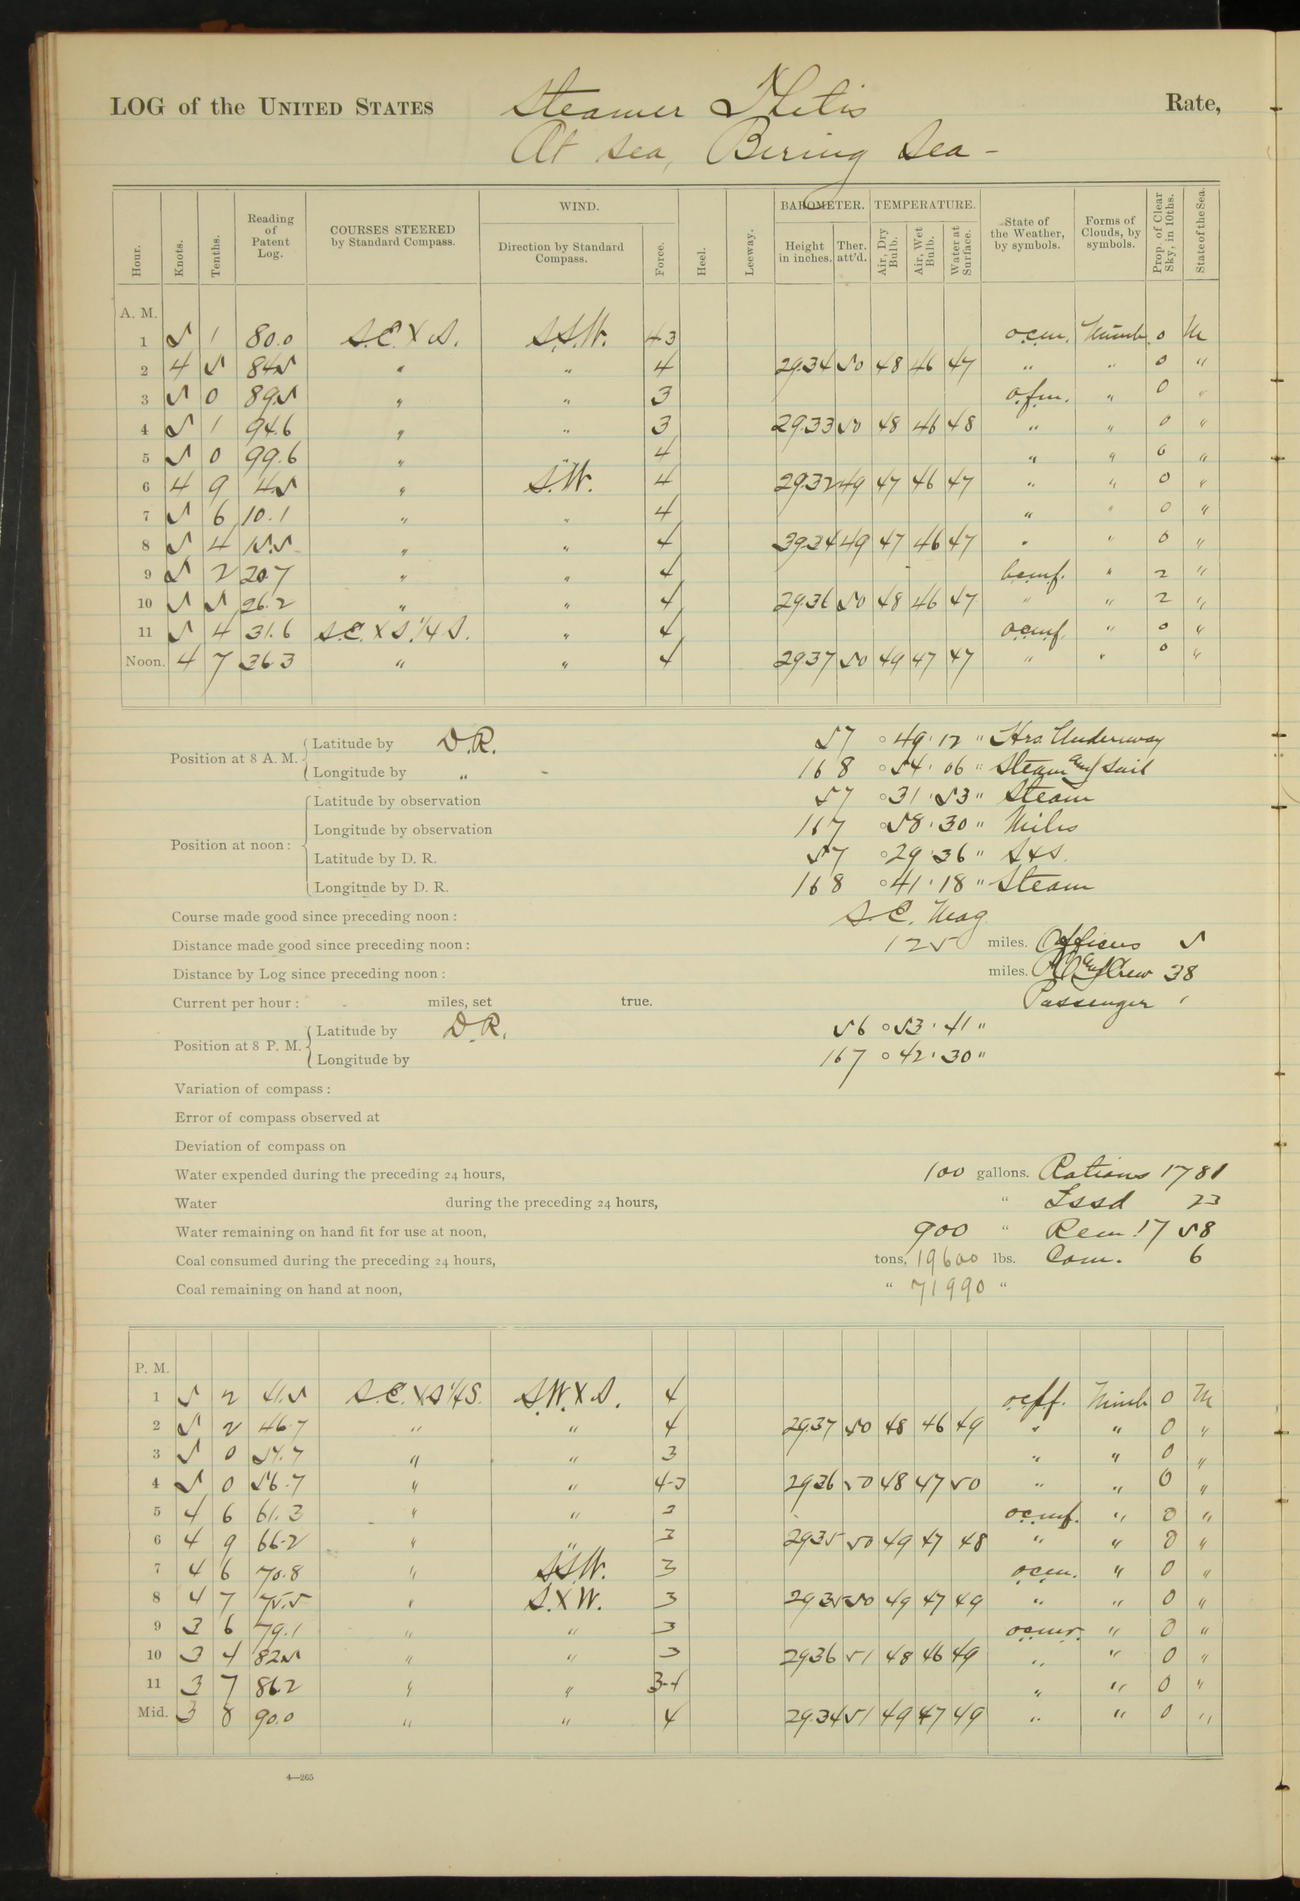 LOG of the UNITED STATES Steamer Thetis Rate,
At sea, Bering Sea -
Hour. Knots. Tenths. Reading of Patent Log. COURSES STEERED by Standard Compass. WIND. Direction by Standard Compass. Force. Heel. Leeway. BAROMETER. Height in inches. Ther. att'd. TEMPERATURE. Air, Dry Bulb. Air, Wet Bulb. Water at Surface. State of the Weather, by symbols. Forms of Clouds, by symbols. Prop. of Clear Sky, in 10ths. State of the Sea.
A. M.
1 5 1 80.0 S.E. X S. S.S.W. 4-3 o.c.m. Nimb. 0 M
2 4 5 84.5 " " 4 29.34 50 48 46 47 " " 0 "
3 5 0 89.5 " " 3 o.f.m. " 0 "
4 5 1 94.6 " " 3 29.33 50 48 46 48 " " 0 "
5 5 0 99.6 " " 4 " " 0 "
6 4 9 4.5 " S.W. 4 29.32 49 47 46 47 " " 0 "
7 5 6 10.1 " " 4 " " 0 "
8 5 4 15.5 " " 4 39.34 49 47 46 47 " " 0 "
9 5 2 20.7 " " 4 b.c.m.f. " 2 "
10 5 5 26.2 " " 4 29.36 50 48 46 47 " " 2 "
11 5 4 31.6 S.E. X S. 1/4 S. " 4 o.c.m.f. " 0 "
Noon. 4 7 36.3 " " 4 29.37 50 49 47 47 " " 0 "
Position at 8 A. M. Latitude by D.R. 57 ° 49 ' 12 " Hrs. Underway
Longitude by " 168 ° 54 ' 06 " Steam and Sail
Position at noon: Latitude by observation 57 ° 31 ' 53 " Steam
Longitude by observation 167 ° 58 ' 30 " Miles
Latitude by D. R. 57 ° 29 ' 36 " S & S.
Longitude by D. R. 168 ° 41 ' 18 " Steam
Course made good since preceding noon: S.E. Mag.
Distance made good since preceding noon: 125 miles. Officers 5
Distance by Log since preceding noon: miles. and Crew 38
Current per hour: miles, set true. Passenger 1
Position at 8 P. M. Latitude by D.R. 56 ° 53 ' 41 "
Longitude by 167 ° 42 ' 30 "
Variation of compass:
Error of compass observed at
Deviation of compass on
Water expended during the preceding 24 hours, 100 gallons. Rations 1781
Water during the preceding 24 hours, " Issd 23
Water remaining on hand fit for use at noon, 900 " Rem. 1758
Coal consumed during the preceding 24 hours, tons, 19600 lbs. Com. 6
Coal remaining on hand at noon, " 71990 "
P. M.
1 5 2 41.5 S.E. X S 1/4 S. S.W. X S. 4 o.c.f.f. Nimb 0 M
2 5 2 46.7 " " 4 29.37 50 48 46 49 " " 0 "
3 5 0 51.7 " " 3 " " 0 "
4 5 0 56.7 " " 4-3 29.36 50 48 47 50 " " 0 "
5 4 6 61.3 " " 3 o.c.m.f. " 0 "
6 4 9 66.2 " " 3 29.35 50 49 47 48 " " 0 "
7 4 6 70.8 " S.S.W. 3 o.c.m. " 0 "
8 4 7 75.5 " S. X W. 3 29.35 50 49 47 49 " " 0 "
9 3 6 79.1 " " 3 o.c.m.r. " 0 "
10 3 4 82.5 " " 3 29.36 51 48 46 49 " " 0 "
11 3 7 86.2 " " 3-4 " " 0 "
Mid. 3 8 90.0 " " 4 29.34 51 49 47 49 " " 0 "
4—265